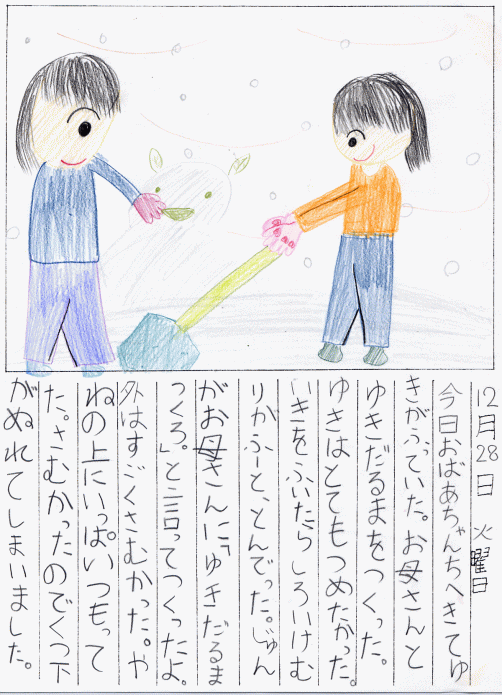 12月28日 火曜日
今日おばあちゃんちへきてゆ
きがふっていた。お母さんと
ゆきだるまをつくった。
ゆきはとてもつめたかった。
いきをふいたらしろいけむ
りがふーと、とんでった。じゅん
がお母さんに「ゆきだるま
つくろ。」と言ってつくったよ。
外はすごくさむかった。や
ねの上にいっぱいつもって
た。さむかったのでくつ下
がぬれてしまいました。